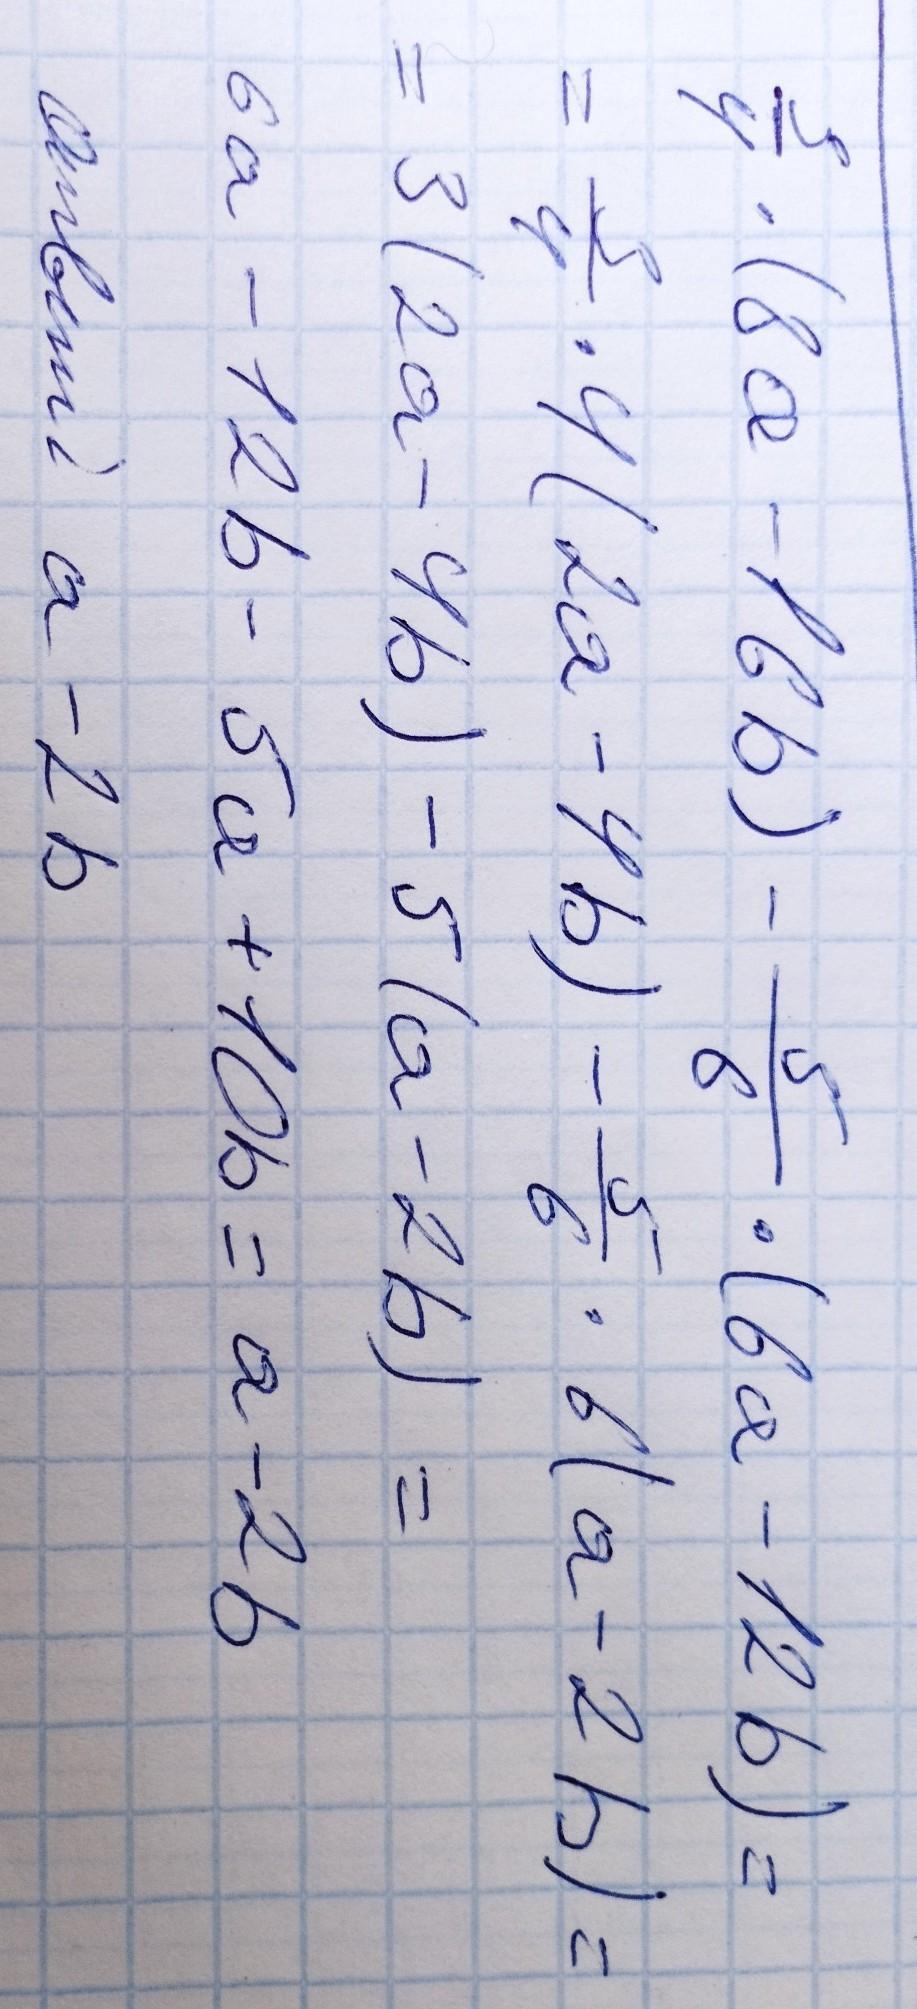 5/4 · (8a - 16b) - 5/6 · (6a - 12b) =
= 5/4 · 4(2a - 4b) - 5/6 · 6(a - 2b) =
= 3(2a - 4b) - 5(a - 2b) =
6a - 12b - 5a + 10b = a - 2b
ответ: a - 2b